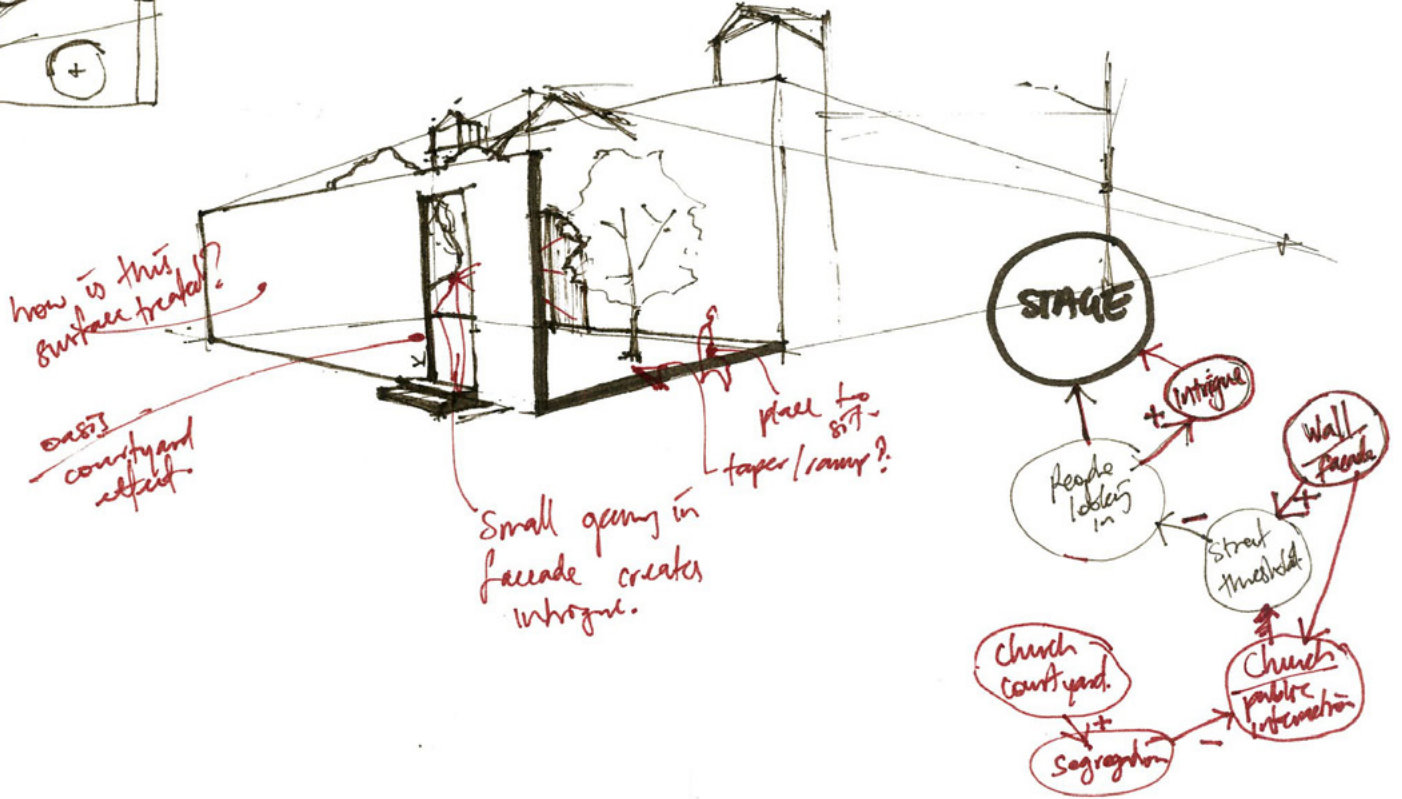 how is this
surface treated?
oasis
courtyard
effect.
Small opening in
facade creates
intrigue.
place to
sit.
taper/ramp?
STAGE
+
intrigue
People
looking
in
Wall
facade
+
-
Street
threshold
Church
courtyard.
+
Segregation
-
Church
public
interaction